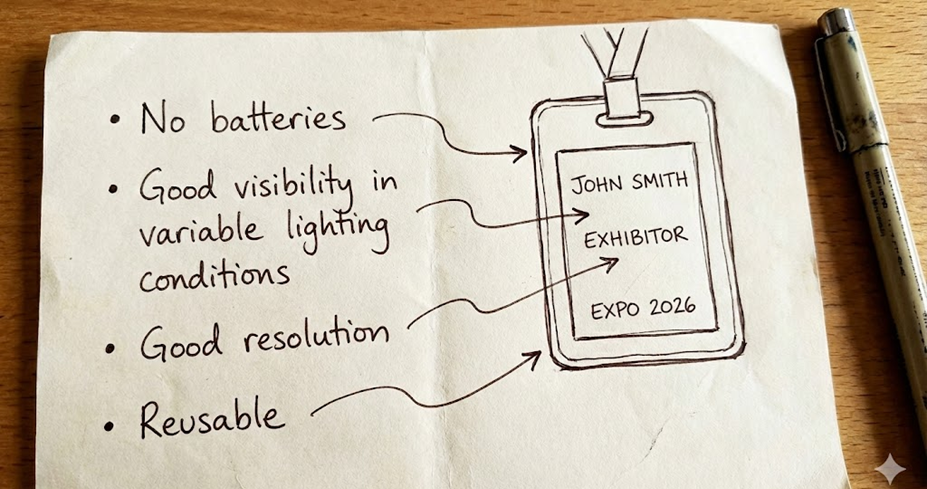 • No batteries
• Good visibility in
variable lighting
conditions
• Good resolution
• Reusable
JOHN SMITH
EXHIBITOR
EXPO 2026